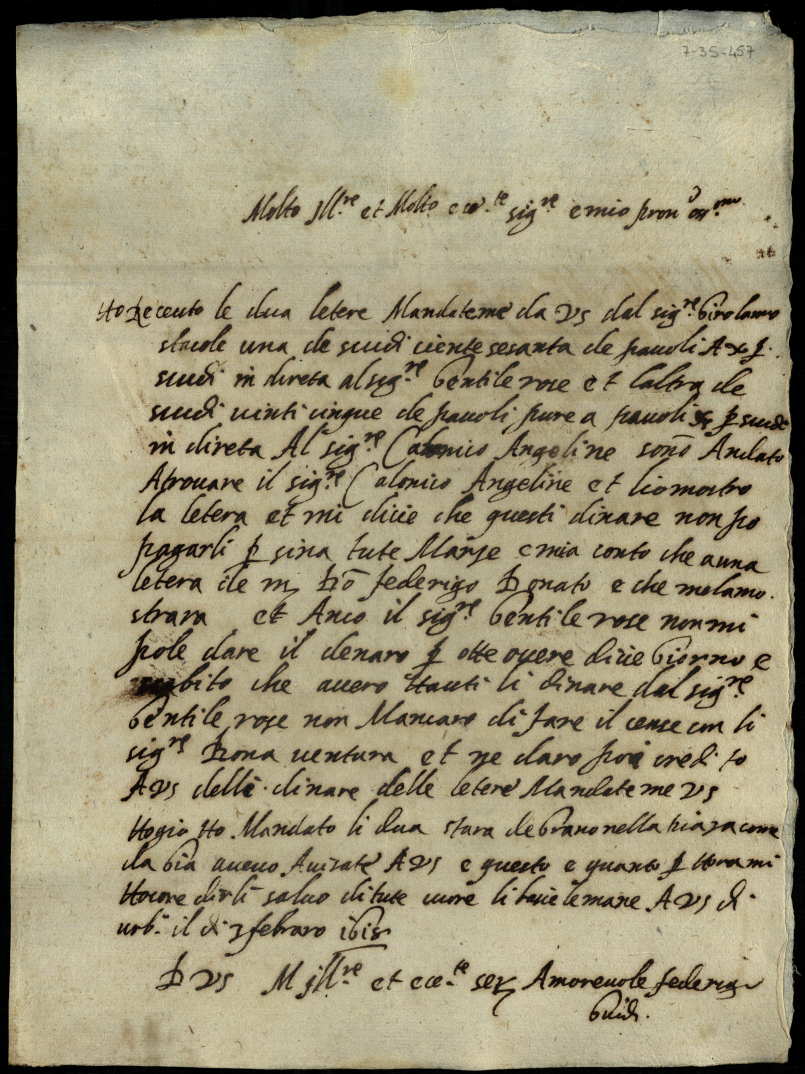 7-35-457
Molto Jll.re et Molto ecc.te sig.re e mio pron
Ho Receuto le dua letere Mandateme da VS dal sig.re Girolamo
stacole una de scudi ciente sesanta de pavoli A x p
scudi in direta al sig.re Gentile rose et laltra de
scudi vinti cinque de pavoli pure a pavoli x p scudi
in direta Al sig.re Calonico Angeline sono Andato
Atrovare il sig.re Calonico Angeline et li o mostro
la letera et mi dicie che questi dinare non po
pagarli p sina tute Marse e mia conto che a una
letera de federigo Bonato e che me la mo
strara et Anco il sig.re Gentile rose non mi
pole dare il denaro p otte overe dicie Giorne e
subito che avero Hauti li dinare dal sig.re
Gentile rose non Mancaro di fare il cense con li
sig.re Bona ventura et ne daro poi credito
A VS delle dinare delle letere Mandateme VS
Hogio Ho Mandato li dua stara de Grano nella come
da Gia avevo Avisate A VS e questo e quanto p Hora mi
Hocore dirli salvo di tute core li bacie le mane A VS di
urb. il di 7 febraro 1618
D VS M Jll.re et ecc.te ser Amorevole federigo
Guidi.